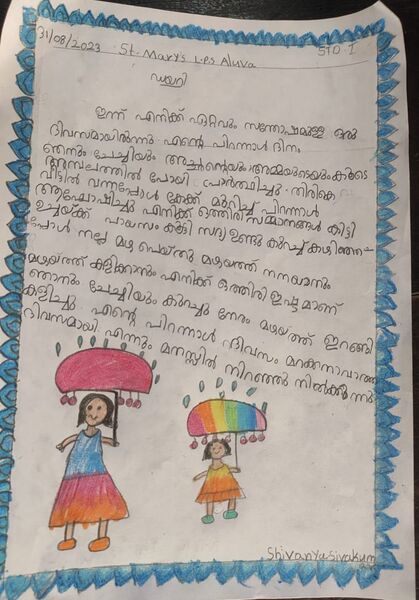 31/08/2023 St. Mary's L.P.S Aluva STD. I
ഡയറി
ഇന്ന് എനിക്ക് ഏറ്റവും സന്തോഷമുള്ള ഒരു
ദിവസമായിരുന്നു എന്റെ പിറന്നാൾ ദിനം
ഞാനും ചേച്ചിയും അച്ഛന്റെയും അമ്മയുടെയുംകൂടെ
അമ്പലത്തിൽ പോയി പ്രാർത്ഥിച്ചു. തിരികെ
വീട്ടിൽ വന്നപ്പോൾ കേക്ക് മുറിച്ച് പിറന്നാൾ
ആഘോഷിച്ചു എനിക്ക് ഒത്തിരി സമ്മാനങ്ങൾ കിട്ടി
ഉച്ചയ്ക്ക് പായസം കൂട്ടി സദ്യ ഉണ്ടു കുറച്ച് കഴിഞ്ഞ
പ്പോൾ നല്ല മഴ പെയ്തു മഴയത്ത് നനയാനും
മഴയത്ത് കളിക്കാനും എനിക്ക് ഒത്തിരി ഇഷ്ടമാണ്
ഞാനും ചേച്ചിയും കുറച്ചു നേരം മഴയ്ത്ത് ഇറങ്ങി
കളിച്ചു എന്റെ പിറന്നാൾ ദിവസം മറക്കനാവാത്ത
ദിവസമായി എന്നും മനസ്സിൽ നിറഞ്ഞു നിൽക്കുന്നു
Shivanya Sivakum